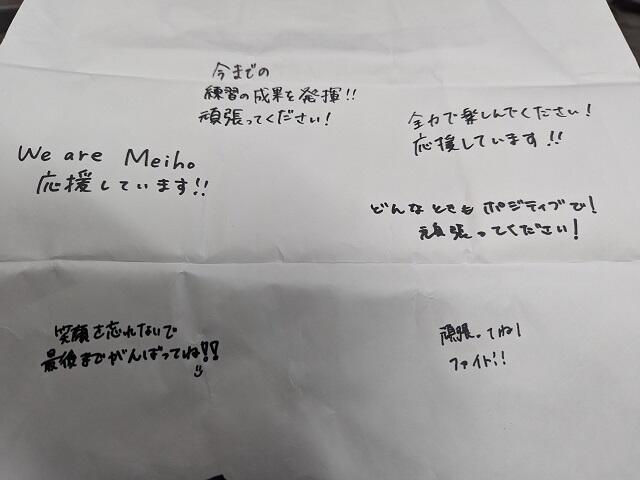 今までの
練習の成果を発揮!!
頑張ってください!
全力で楽しんでください!
応援しています!!
We are Meiho
応援しています!!
どんなときもポジティブで!
頑張ってください!
笑顔を忘れないで
最後までがんばってね!!
頑張ってね!
ファイト!!